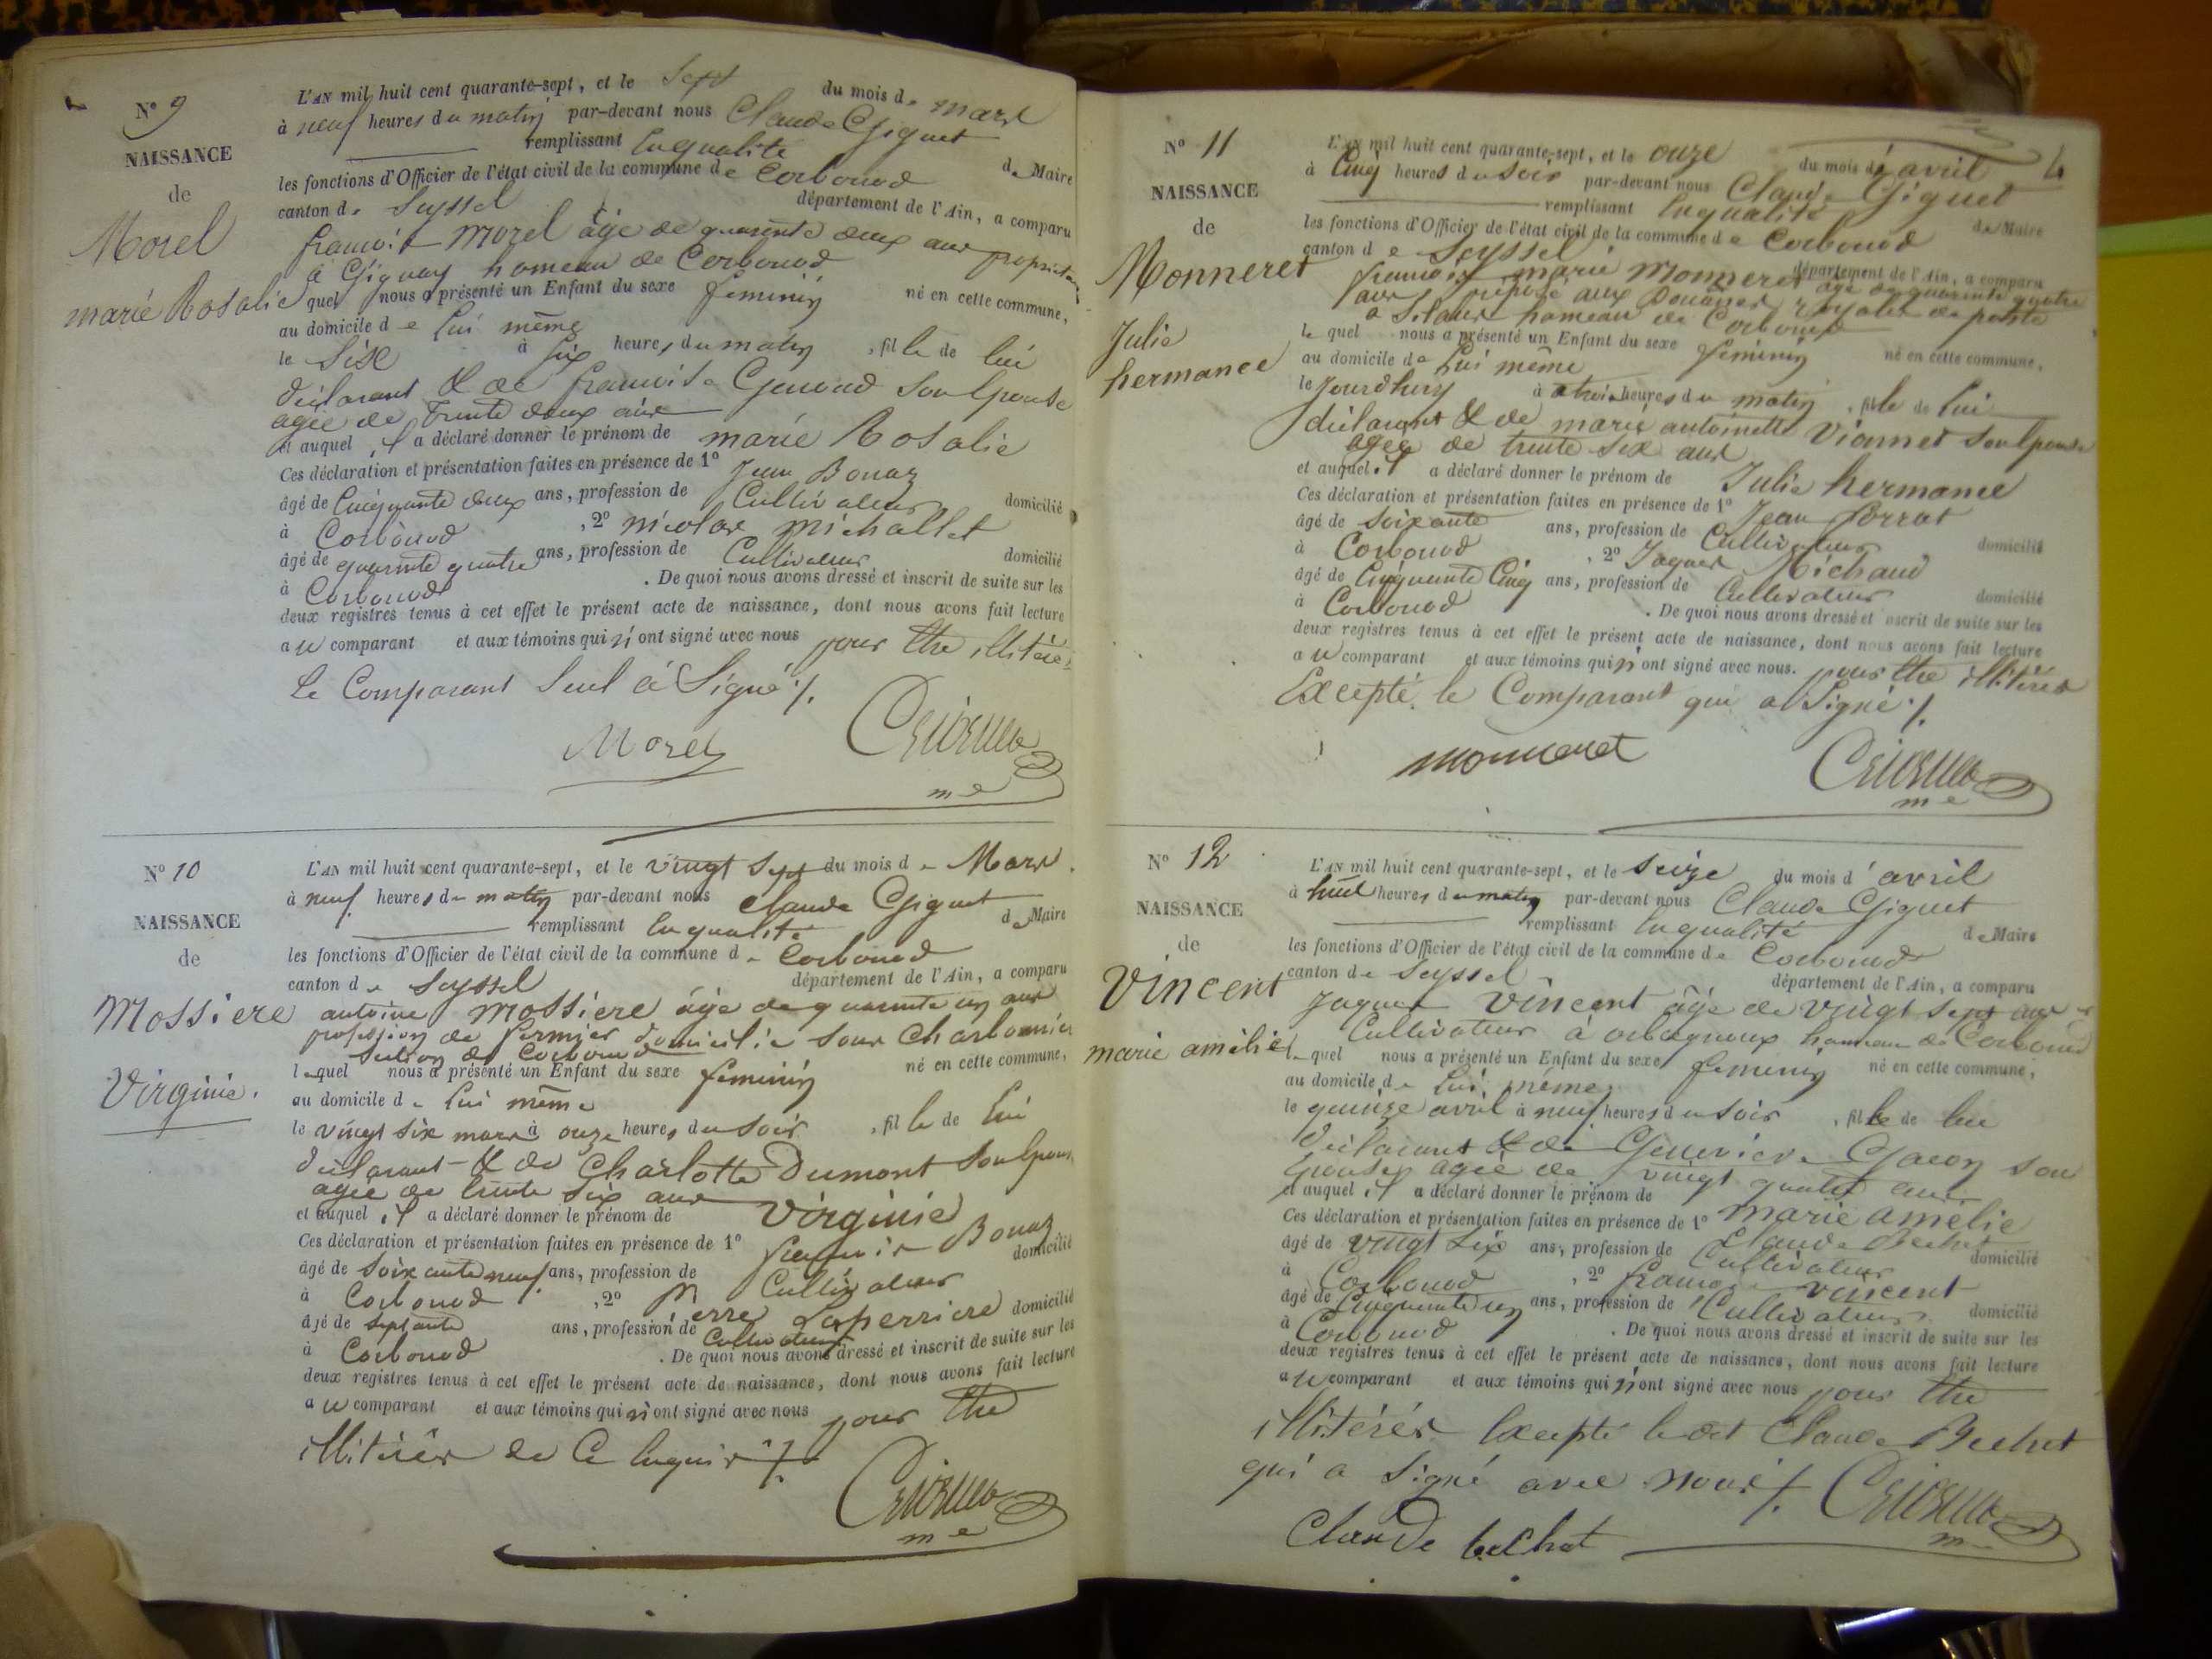 N° 9
NAISSANCE
de
Morel
marie Rosalie
L'AN mil huit cent quarante-sept, et le Sept du mois de mars
à neuf heures du matin par-devant nous Claude Giguet
remplissant en qualité de Maire
les fonctions d'Officier de l'état civil de la commune de Corbonod
canton de Seyssel département de l'Ain, a comparu
françois Morel âgé de quarente deux ans proprietaire
à Gignay hameau de Corbonod
quel nous a présenté un Enfant du sexe feminin né en cette commune,
au domicile de lui même
le Six à six heures du matin, fille de lui
déclarant & de françoise Genoud son epouse
agée de trente deux ans
et auquel il a déclaré donner le prénom de marie Rosalie
Ces déclaration et présentation faites en présence de 1° Jean Bonaz
âgé de Cinquante deux ans, profession de Cultivateur domicilié
à Corbonod, 2° nicolas michallet
âgé de quarente quatre ans, profession de Cultivateur domicilié
à Corbonod. De quoi nous avons dressé et inscrit de suite sur les
deux registres tenus à cet effet le présent acte de naissance, dont nous avons fait lecture
au comparant et aux témoins qui n'ont signé avec nous pour être illitérés
Le Comparant Seul a Signé ./.
Morel
me
N° 10
NAISSANCE
de
Mossiere
Virginie.
L'AN mil huit cent quarante-sept, et le vingt Sept du mois de Mars
à neuf heures du matin par-devant nous Claude Giguet
remplissant en qualité de Maire
les fonctions d'Officier de l'état civil de la commune de Corbonod
canton de Seyssel département de l'Ain, a comparu
antoine Mossiere âgé de quarente un ans
profession de fermier domicilié sous Charbonnier
section de Corbonod
lequel nous a présenté un Enfant du sexe feminin né en cette commune,
au domicile de lui même
le vingt six mars à onze heures du soir, fille de lui
déclarant & de Charlotte Dumont son epouse
agée de trente six ans
et auquel il a déclaré donner le prénom de Virginie
Ces déclaration et présentation faites en présence de 1° françois Bonaz
âgé de soixante neuf ans, profession de Cultivateur domicilié
à Corbonod, 2° pierre Laperriere
âgé de septante ans, profession de Cultivateur domicilié
à Corbonod. De quoi nous avons dressé et inscrit de suite sur les
deux registres tenus à cet effet le présent acte de naissance, dont nous avons fait lecture
au comparant et aux témoins qui n'ont signé avec nous pour être
illitérés de ce enquis ./.
me
N° 11
NAISSANCE
de
Monneret
Julie
hermance
L'AN mil huit cent quarante-sept, et le onze du mois d'avril
à Cinq heures du soir par-devant nous Claude Giguet
remplissant en qualité de Maire
les fonctions d'Officier de l'état civil de la commune de Corbonod
canton de Seyssel département de l'Ain, a comparu
françois marie Monneret agé de quarente quatre
ans préposé aux Douanes royales de poste
a hameau de Corbonod
le quel nous a présenté un Enfant du sexe feminin né en cette commune,
au domicile de lui même
le jourdhuy à trois heures du matin, fille de lui
déclarant & de marie antoinette Vionnet son epouse
agée de trente six ans
et auquel il a déclaré donner le prénom de Julie hermance
Ces déclaration et présentation faites en présence de 1° Jean Porrat
âgé de soixante ans, profession de Cultivateur domicilié
à Corbonod, 2° Jaques Michaud
âgé de Cinquante Cinq ans, profession de Cultivateur domicilié
à Corbonod. De quoi nous avons dressé et inscrit de suite sur les
deux registres tenus à cet effet le présent acte de naissance, dont nous avons fait lecture
au comparant et aux témoins qui n'ont signé avec nous. pour être illitérés
Excepté le Comparant qui a Signé ./.
monneret
me
N° 12
NAISSANCE
de
Vincent
marie amelie
L'AN mil huit cent quarante-sept, et le seize du mois d'avril
à huit heures du matin par-devant nous Claude Giguet
remplissant en qualité de Maire
les fonctions d'Officier de l'état civil de la commune de Corbonod
canton de Seyssel département de l'Ain, a comparu
Jaques Vincent âgé de vingt sept ans
Cultivateur à orbagnoux hameau de Corbonod
le quel nous a présenté un Enfant du sexe feminin né en cette commune,
au domicile de lui même
le quinze avril à neuf heures du soir, fille de lui
déclarant & de Genevieve Gacon son
epouse agée de vingt quatre ans
et auquel il a déclaré donner le prénom de marie amelie
Ces déclaration et présentation faites en présence de 1° Claude Bechet
âgé de vingt six ans, profession de Cultivateur domicilié
à Corbonod, 2° françois vincent
âgé de Cinquante un ans, profession de Cultivateur domicilié
à Corbonod. De quoi nous avons dressé et inscrit de suite sur les
deux registres tenus à cet effet le présent acte de naissance, dont nous avons fait lecture
au comparant et aux témoins qui n'ont signé avec nous pour être
illitérés Excepté ledit Claude Bechet
qui a Signé avec nous ./.
Claude bechet